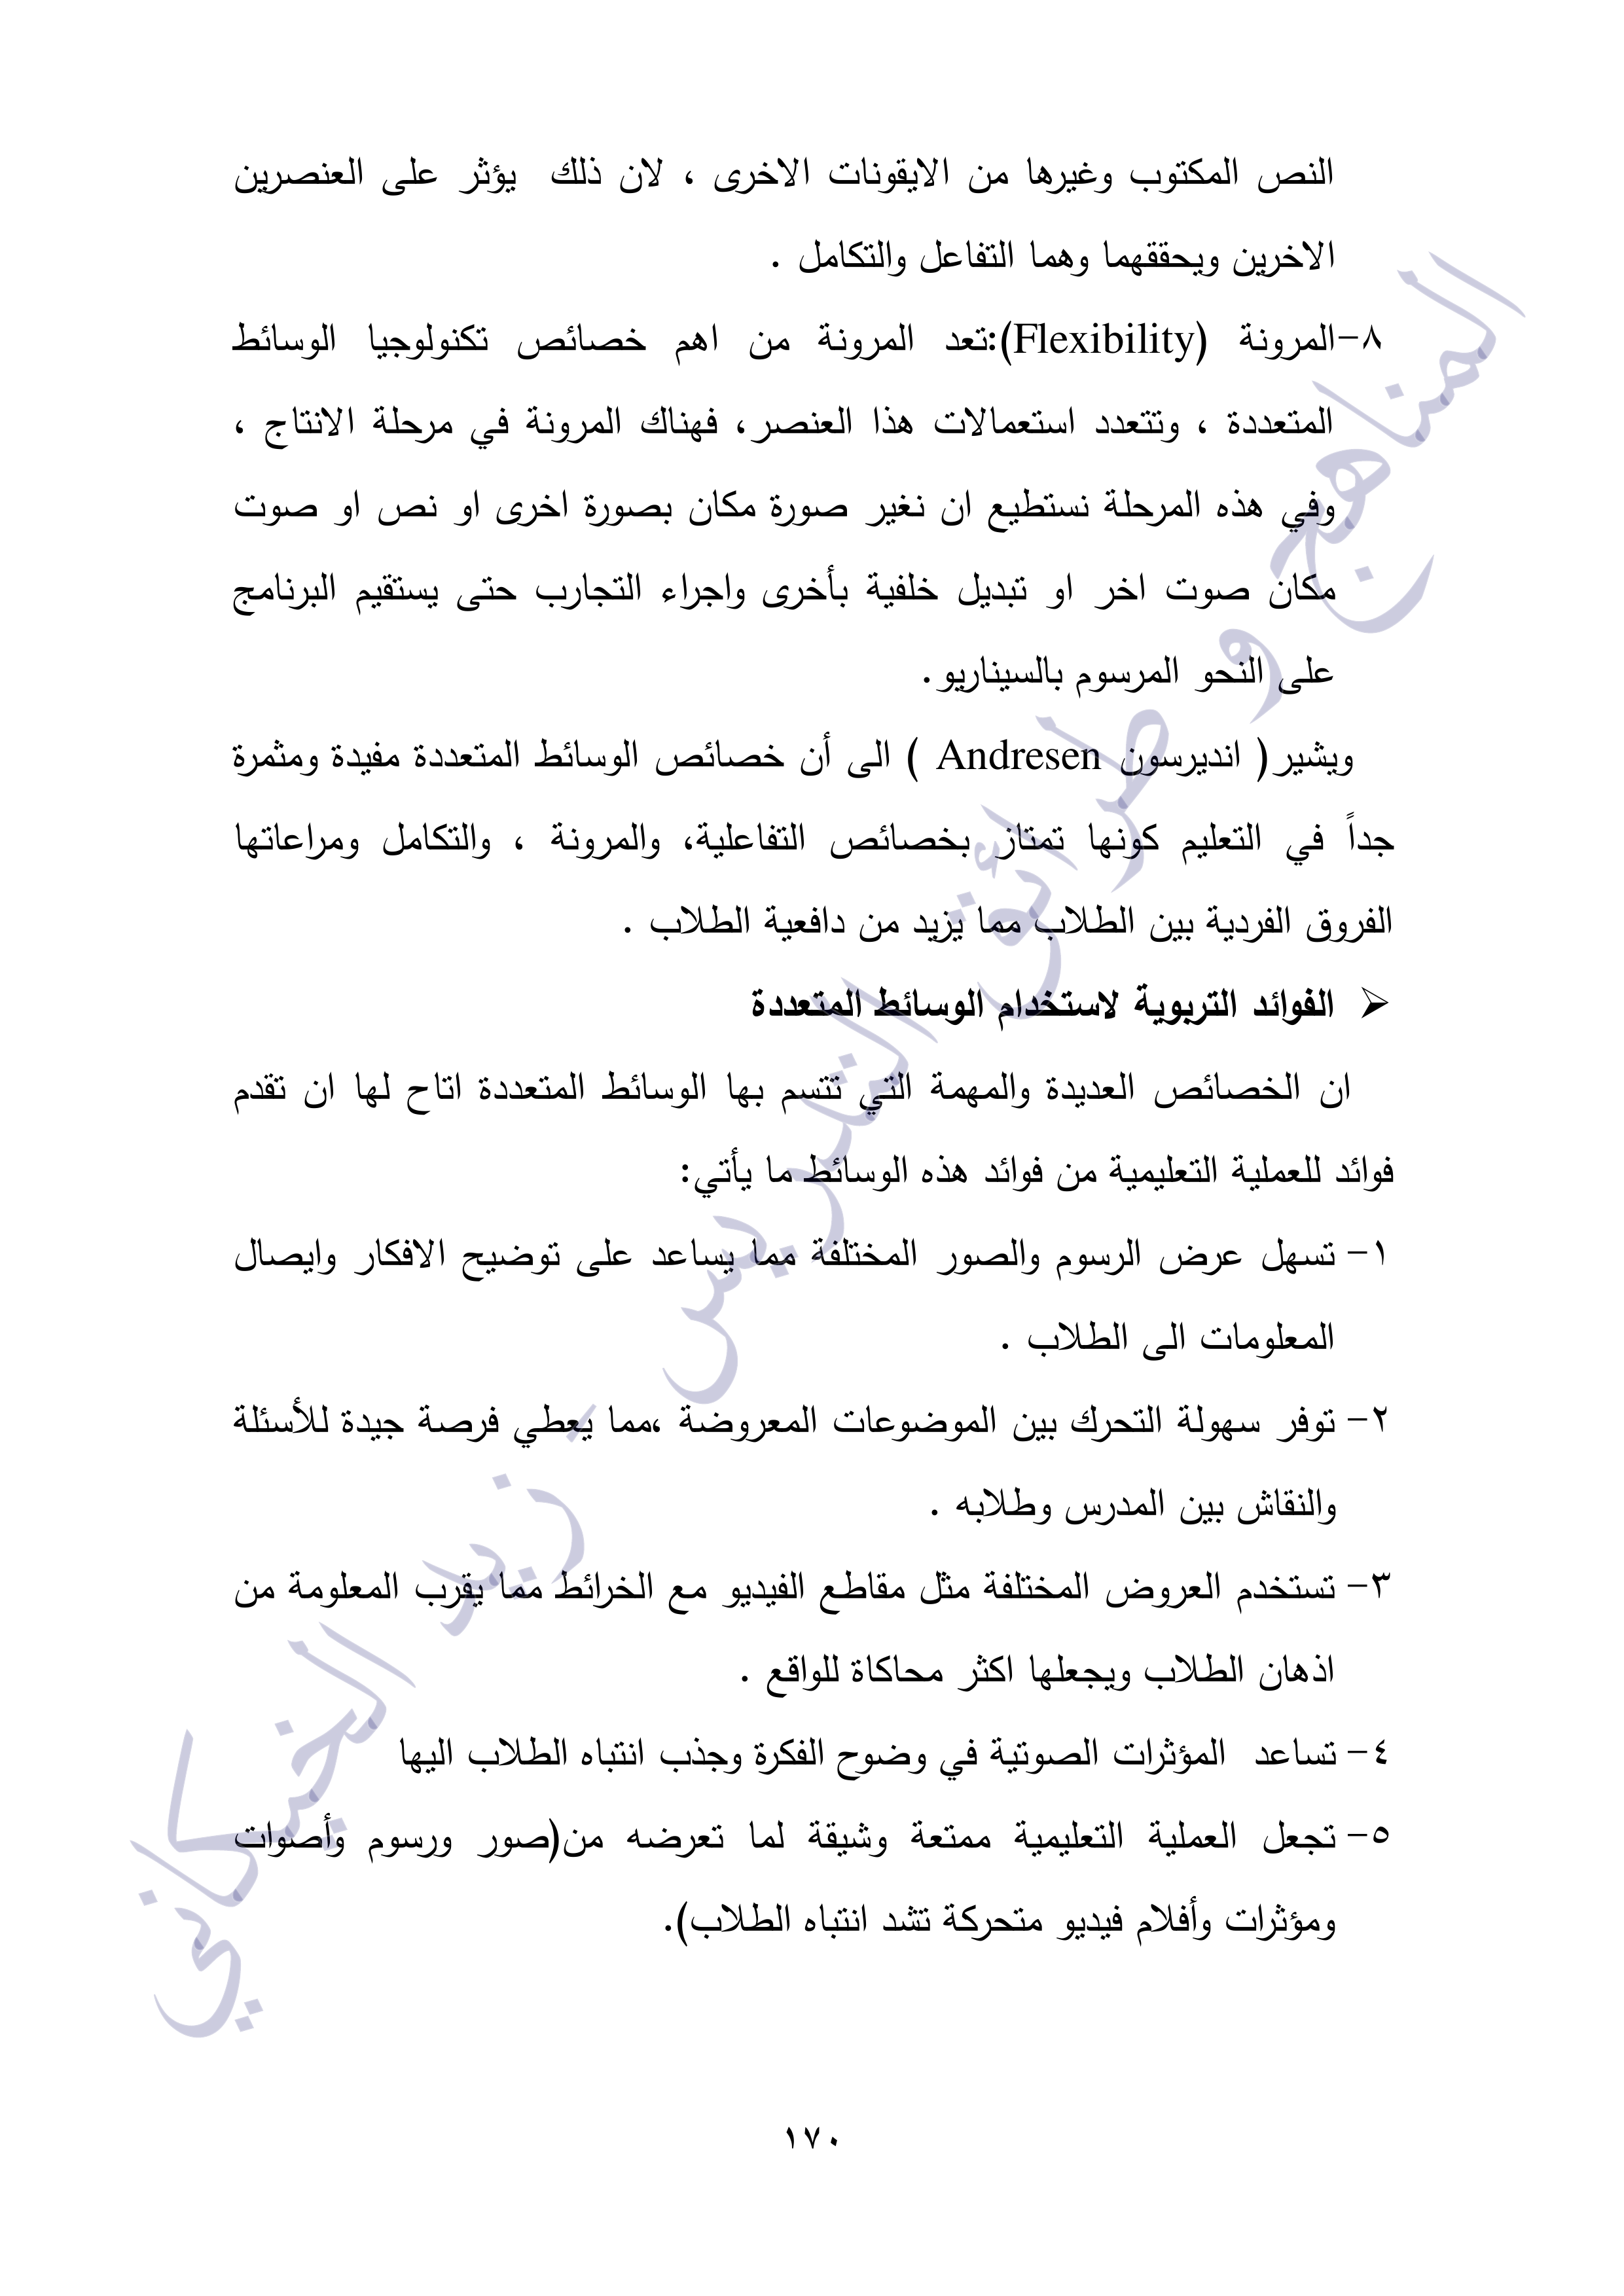 النص المكتوب وغيرها من الايقونات الاخرى ، لان ذلك يؤثر على العنصرين
الاخرين ويحققهما وهما التفاعل والتكامل .
٨-المرونة (Flexibility):تعد المرونة من اهم خصائص تكنولوجيا الوسائط
المتعددة ، وتتعدد استعمالات هذا العنصر، فهناك المرونة في مرحلة الانتاج ،
وفي هذه المرحلة نستطيع ان نغير صورة مكان بصورة اخرى او نص او صوت
مكان صوت اخر او تبديل خلفية بأخرى واجراء التجارب حتى يستقيم البرنامج
على النحو المرسوم بالسيناريو.
ويشير( انديرسون Andresen ) الى أن خصائص الوسائط المتعددة مفيدة ومثمرة
جداً في التعليم كونها تمتاز بخصائص التفاعلية، والمرونة ، والتكامل ومراعاتها
الفروق الفردية بين الطلاب مما يزيد من دافعية الطلاب .
➢ الفوائد التربوية لاستخدام الوسائط المتعددة
ان الخصائص العديدة والمهمة التي تتسم بها الوسائط المتعددة اتاح لها ان تقدم
فوائد للعملية التعليمية من فوائد هذه الوسائط ما يأتي:
١- تسهل عرض الرسوم والصور المختلفة مما يساعد على توضيح الافكار وايصال
المعلومات الى الطلاب .
٢- توفر سهولة التحرك بين الموضوعات المعروضة ،مما يعطي فرصة جيدة للأسئلة
والنقاش بين المدرس وطلابه .
٣- تستخدم العروض المختلفة مثل مقاطع الفيديو مع الخرائط مما يقرب المعلومة من
اذهان الطلاب ويجعلها اكثر محاكاة للواقع .
٤- تساعد المؤثرات الصوتية في وضوح الفكرة وجذب انتباه الطلاب اليها
٥- تجعل العملية التعليمية ممتعة وشيقة لما تعرضه من(صور ورسوم وأصوات
ومؤثرات وأفلام فيديو متحركة تشد انتباه الطلاب).
المناهج وطرائق التدريس - زيد الخيكاني
١٧٠